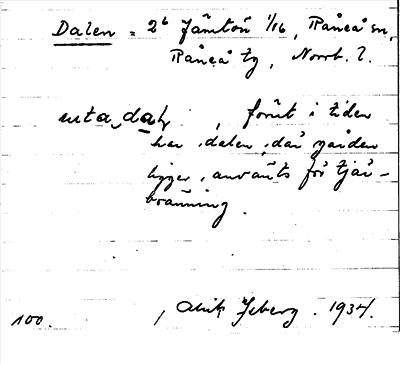 Dalen = 2⁶ Jämtön 1/16, Råneå sn,
Råneå tg, Norrb. l.
uta dah, förut i tiden
har dalen, där gården
ligger, använts för tjär-
bränning.
100. , Isberg. 1934.